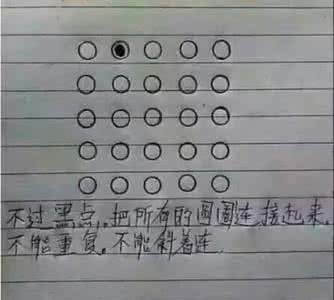 不过黑点,把所有的圆圈连接起来,
不能重复。不能斜着连.